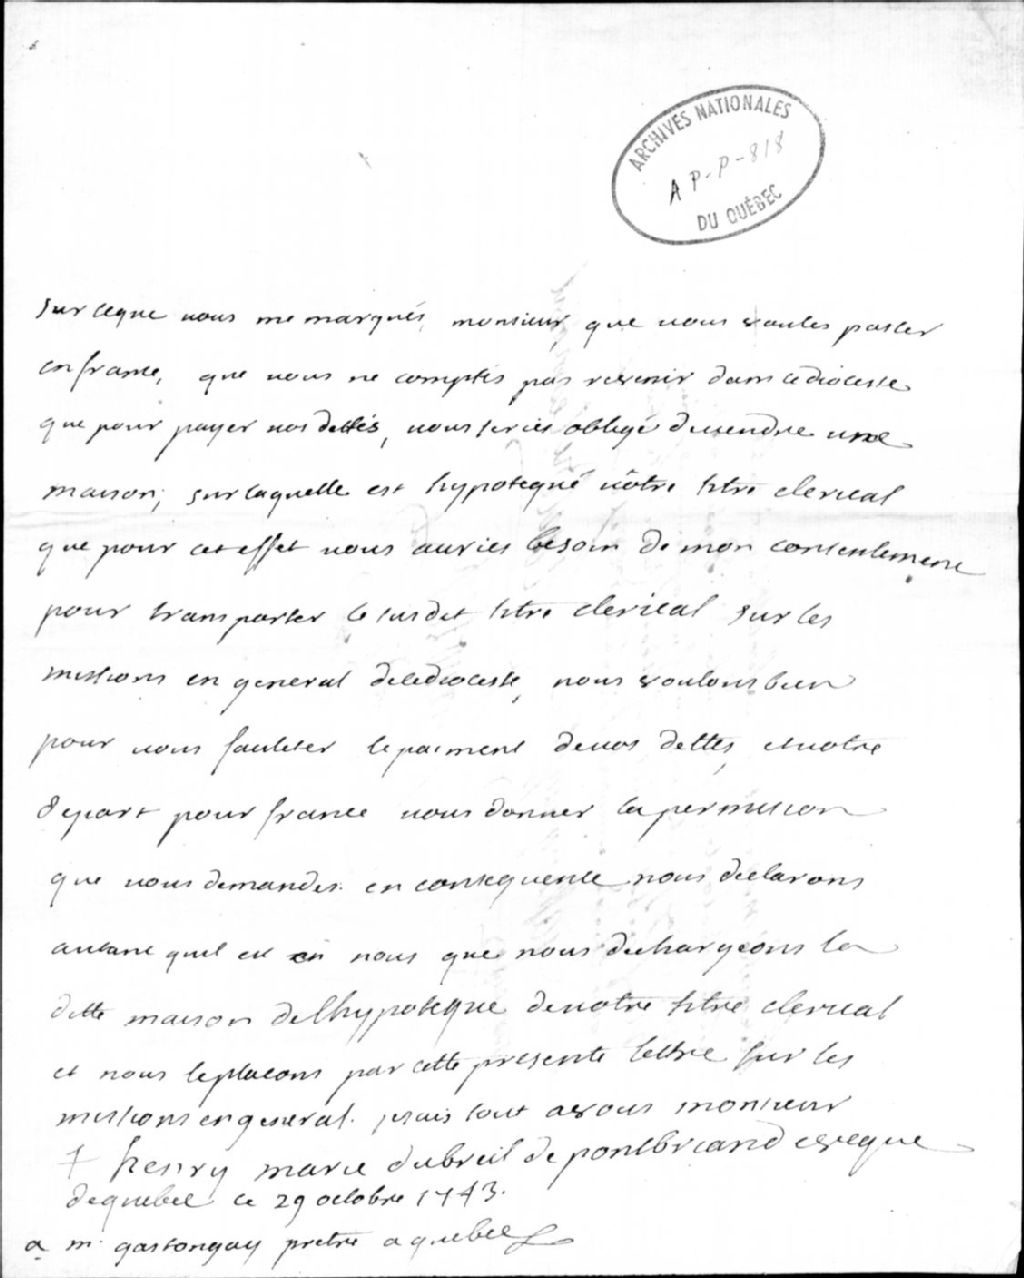 ARCHIVES NATIONALES
AP-P-818
DU QUÉBEC
sur ceque vous me marqués, monsieur, que vous voulés passer
en france, que vous ne comptés pas revenir dans cediocesse
que pour payer vos dettés, vous seriés obligé devendre une
maison, sur laquelle est hypotequé vôtre titre clerical
que pour cet effet vous auriés besoin de mon consentement
pour transporter le susdit titre clerical sur les
missions en general decediocesse, nous voulons bien
pour vous faciliter lepaiment devos dettes, etvotre
depart pour france vous donner la permission
que vous demandés. en consequence nous declarons
autant quil est en nous que nous dechargeons la
ditte maison delhypoteque devotre titre clerical
et nous leplacons par cette presente lettre sur les
missions engeneral. jesuis tout avous monsieur
† henry marie dubreil de pontbriand eveque
dequebec ce 29 octobre 1743.
a mr gastonguay pretre a quebec